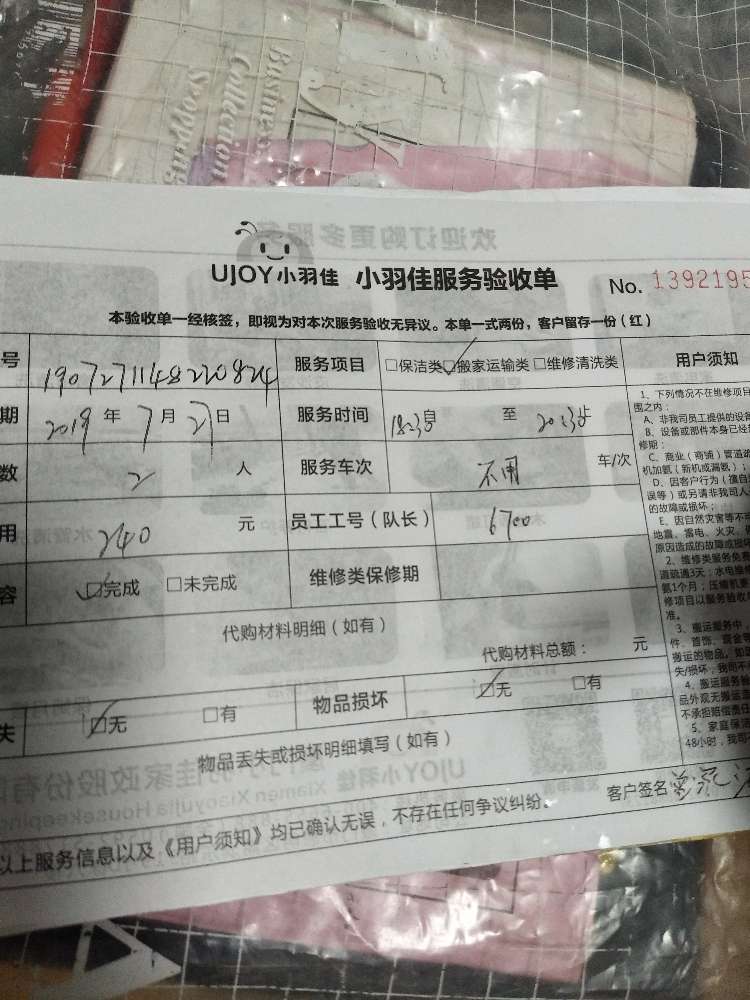 Business
Collection
Shopping
欢迎订购更多服务
UJOY小羽佳 小羽佳服务验收单 No. 1392195
本验收单一经核签，即视为对本次服务验收无异议。本单一式两份，客户留存一份（红）
号 服务项目 □保洁类 ☑搬家运输类 □维修清洗类 用户须知
期 2019 年 7 月 27 日 服务时间 至
数 2 人 服务车次 不用 车/次
用 240 元 员工工号（队长） 6700
容 ☑完成 □未完成 维修类保修期
代购材料明细（如有）
代购材料总额： 元
失 ☑无 □有 物品损坏 ☑无 □有
物品丢失或损坏明细填写（如有）
以上服务信息以及《用户须知》均已确认无误，不存在任何争议纠纷。 客户签名
1、下列情况不在维修项目
围之内：
A、非我司员工提供的设备
B、设备或部件本身已经
修期；
C、商业（商铺）管道疏
机加氨（新机或漏氨）；
D、因客户行为（擅自
误等）或另请非我司人
的故障或损坏；
E、因自然灾害等不
地震、雷电、火灾、
原因造成的故障或损坏
2、维修类服务免费
道疏通3天；水电维修
氨1个月；压缩机更
修项目以服务验收单
准。
3、搬运服务中，
件、首饰、现金
搬运的物品，如
失/损坏，我司不
4、搬运服务验
品外观无搬运
不承担赔偿责任
5、家庭保
48小时，我司
UJOY小羽佳 家政股份有
Xiamen Xiaoyujia Housekeeping